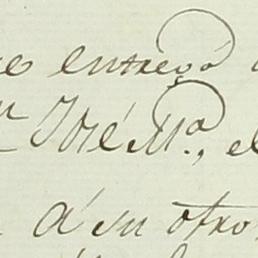 se entregó a
n José Mª., el
a su otro